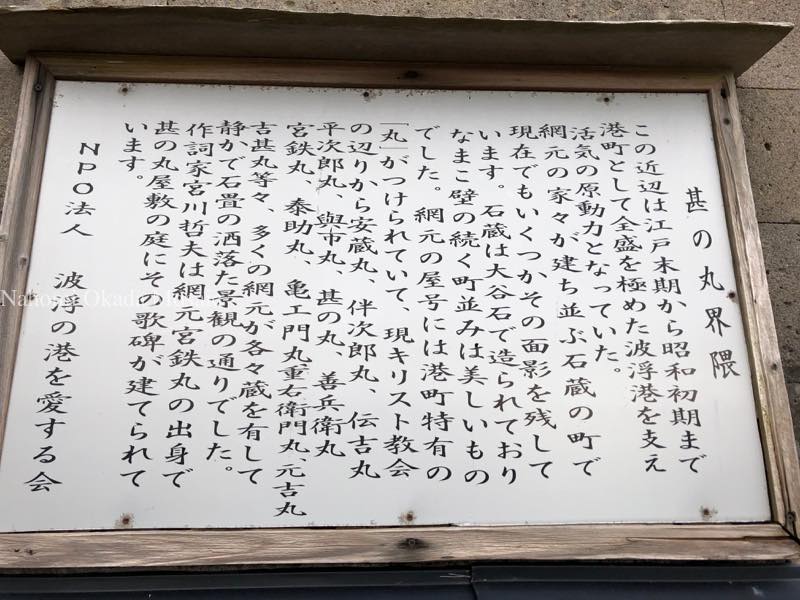 甚の丸界隈
この近辺は江戸末期から昭和初期まで
港町として全盛を極めた波浮港を支え
活気の原動力となっていた。
網元の家々が建ち並ぶ石蔵の町で
現在でもいくつかその面影を残して
います。石蔵は大谷石で造られており
なまこ壁の続く町並みは美しいもの
でした。網元の屋号には港町特有の
「丸」がつけられていて、現キリスト教会
の辺りから安蔵丸、伴次郎丸、伝吉丸
平次郎丸、與市丸、甚の丸、善兵衛丸
宮鉄丸、泰助丸、亀エ門丸重右衛門丸、元吉丸
吉甚丸等々、多くの網元が各々蔵を有して
静かで石畳の洒落た景観の通りでした。
作詞家宮川哲夫は網元宮鉄丸の出身で
甚の丸屋敷の庭にその歌碑が建てられて
います。
NPO法人 波浮の港を愛する会